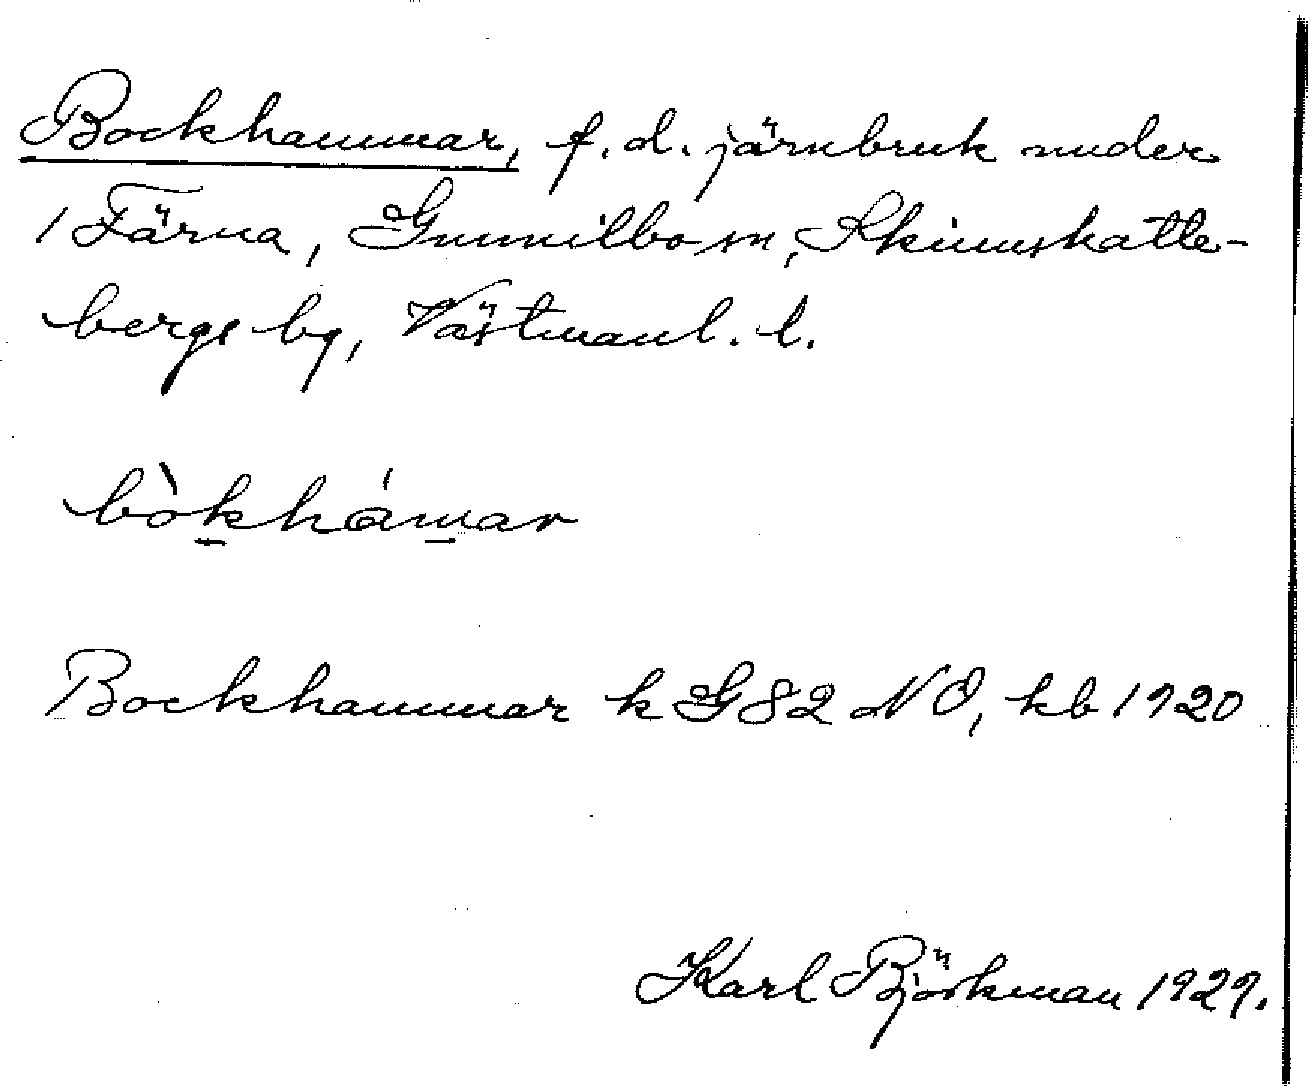 Bockhammar, f. d. järnbruk under
1 Färna, Gunnilbo sn, Skinnskatte-
bergs bg, Västmanl. l.
bòkhámar
Bockhammar k G 82 NO, kb 1920
Karl Björkman 1929.